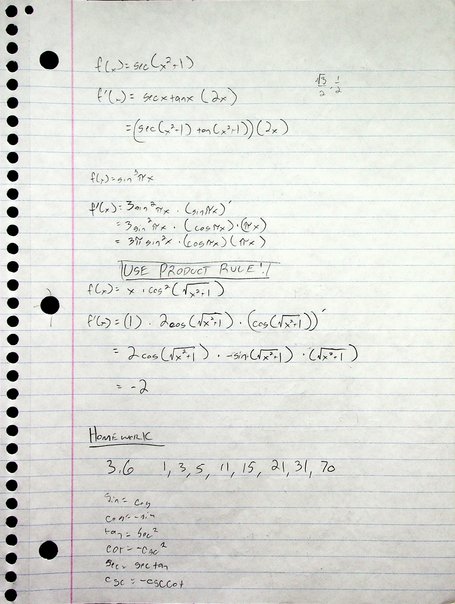 f(x) = sec(x²+1)
√3/2 · 1/2
f'(x) = secxtanx (2x)
= (sec(x²+1) tan(x²+1))(2x)
f(x) = sin³πx
f'(x) = 3sin²πx · (sinπx)'
= 3sin²πx · (cosπx) · (πx)
= 3π sin²x · (cosπx)(πx)
USE PRODUCT RULE!!
f(x) = x · cos²(√x²+1)
f'(x) = (1) · 2cos(√x²+1) · (cos(√x²+1))'
= 2cos(√x²+1) · -sin(√x²+1) · (√x²+1)
= -2
HOMEWORK
3.6 1, 3, 5, 11, 15, 21, 31, 70
sin = cos
cos = -sin
tan = sec²
cot = -csc²
sec = sectan
csc = -csccot